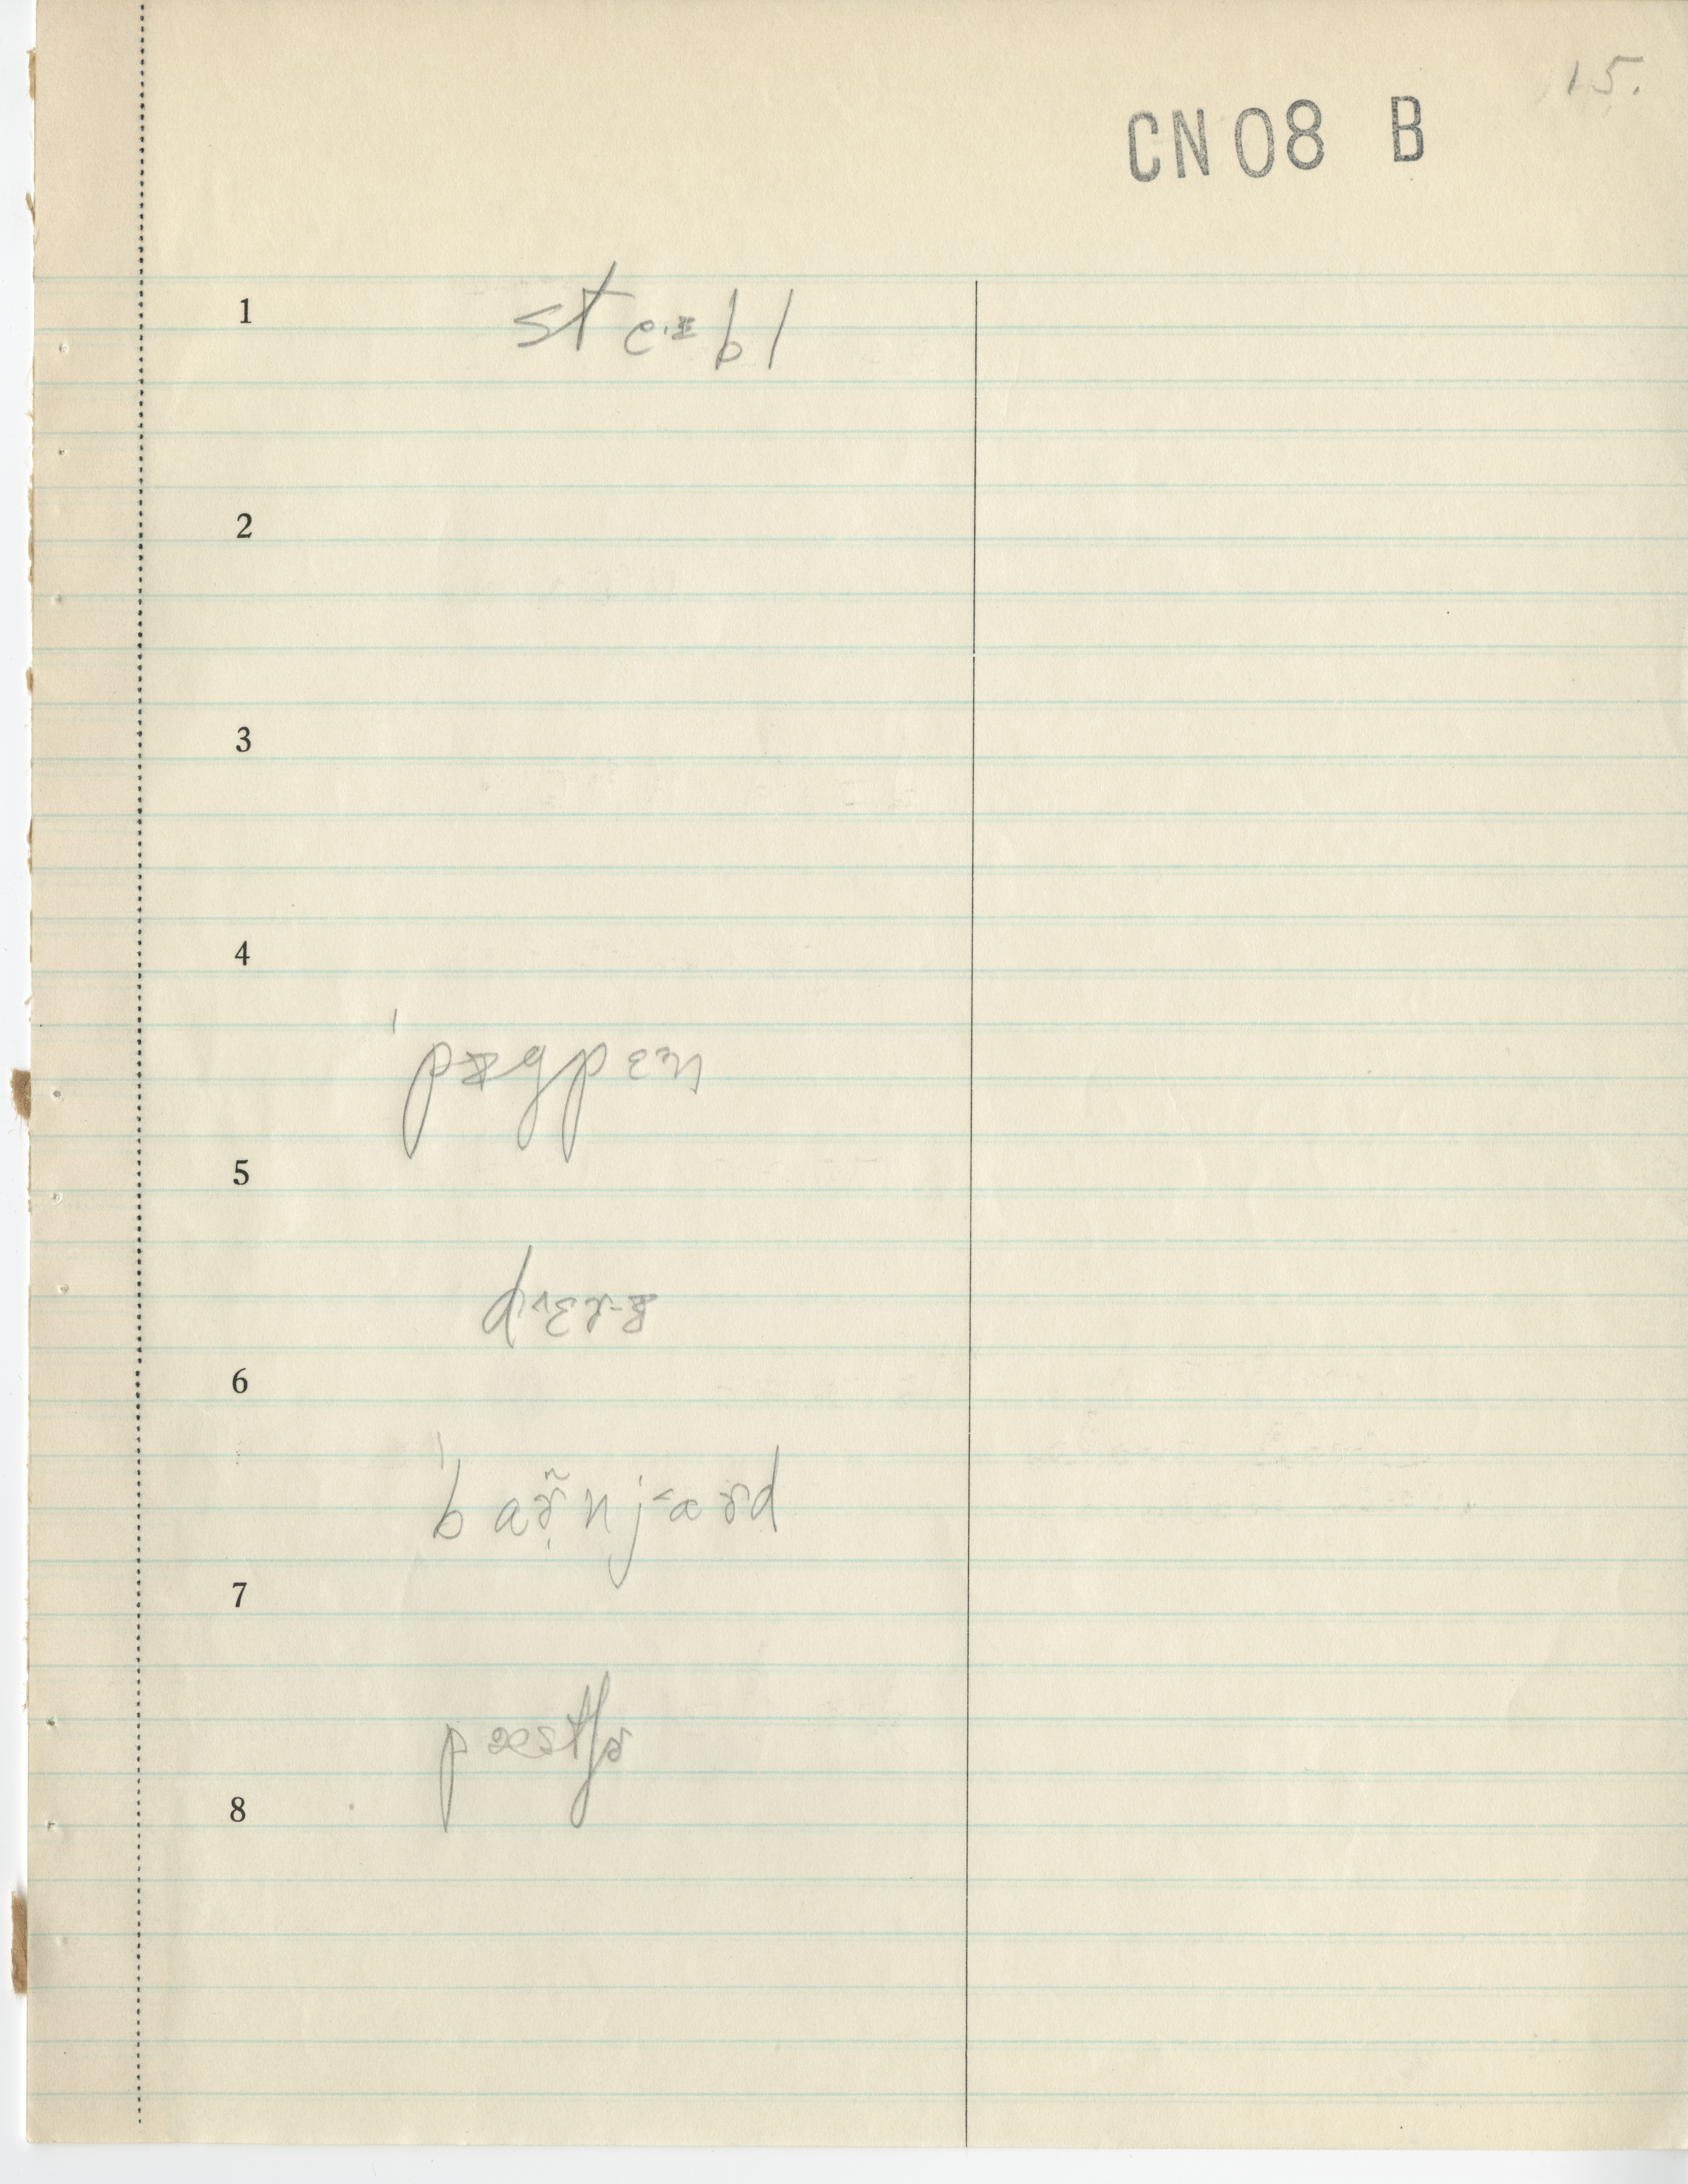 15.
CN08 B
1
ste·ᵻbl
2
3
4
ˈpᵻgpɛ˃n
5
d˄ɛɚ-ᵻ
6
ˈbaɚ̃nj˂aɚd
7
pæstʃɚ
8